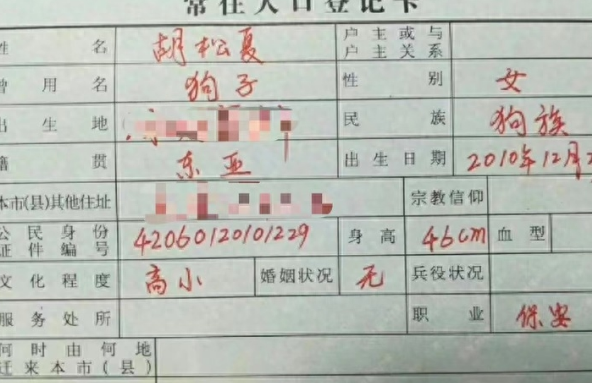 常住人口登记卡
姓 名 胡松夏 户主或与
户主关系
曾用名 狗子 性 别 女
出生地 民 族 狗族
籍 贯 东亚 出生日期 2010年12月2
本市(县)其他住址 宗教信仰
公民身份
证件编号 42060120101229 身 高 46cm 血型
文化程度 高小 婚姻状况 无 兵役状况
服务处所 职 业 保安
何时由何地
迁来本市(县)